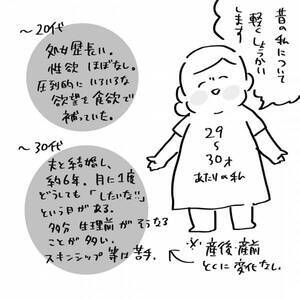 昔の私について
軽くしょうかい
します
〜20代
処女歴長い。
性欲ほぼなし。
圧倒的にいろいろな
欲望を食欲で
補っていた。
29
〜
30才
あたりの私
〜30代
夫と結婚し、
約6年。月に1度
どうしても「したいな!!」
という日がある。
多分生理前がそうなる
ことが多い。
スキンシップ等は苦手。
※産後・産前
とくに変化なし。